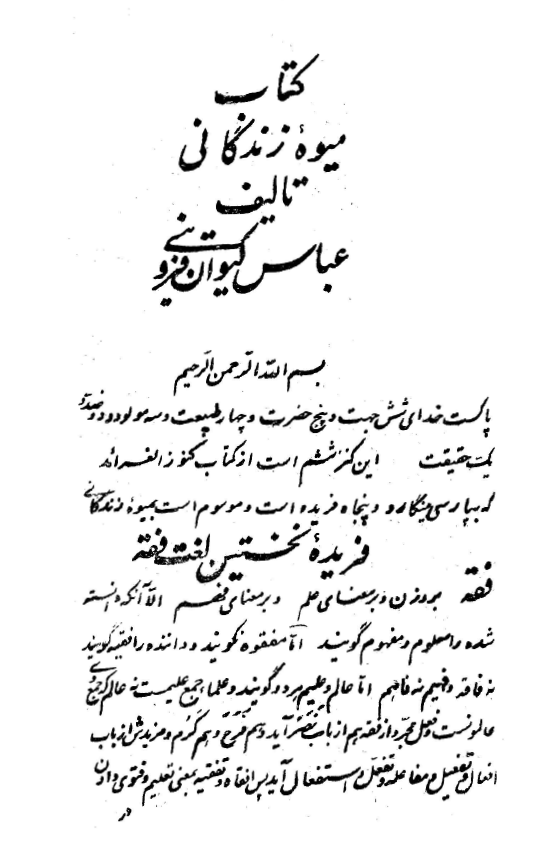 کتاب
میوهٔ زندگانی
تالیف
عباس کیوان قزوینی
بسم الله الرحمن الرحیم
پاکست خدای شش جهت و پنج حضرت و چهار طبیعت و سه مولود و دو ضد و
یک حقیقت این کنز ششم است از کتاب کنوز الفرائد
که بپارسی مینگارد و پنجاه فریده است و موسوم است بمیوهٔ زندگانی
فریدهٔ نخستین لغت فقه
فقه بروزن و بر معنای علم و بر معنای فهم الا آنکه دانسته
شده را معلوم و مفهوم گویند اما مفقوه نگویند و داننده را فقیه گویند
نه فاقه و فهیم نه فاهم اما عالم و علیم هر دو گویند و علما جمع علیمست نه عالم که جمع وی
عالمونست و فعل مجرد از فقه هم از باب نصر آید و هم فرح و هم کرم و مزیدش از باب
افعال و تفعیل و مفاعله و تفعل و استفعال آید پس افقاه و تفقیه بمعنی تعلیم و فتوی دادن
در